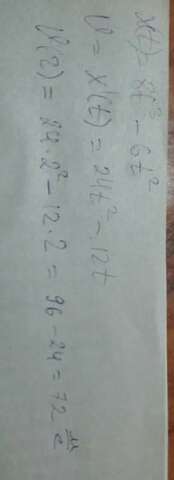 x(t) = 8t³ - 6t²
v = x'(t) = 24t² - 12t
v(2) = 24·2² - 12·2 = 96 - 24 = 72 м/с